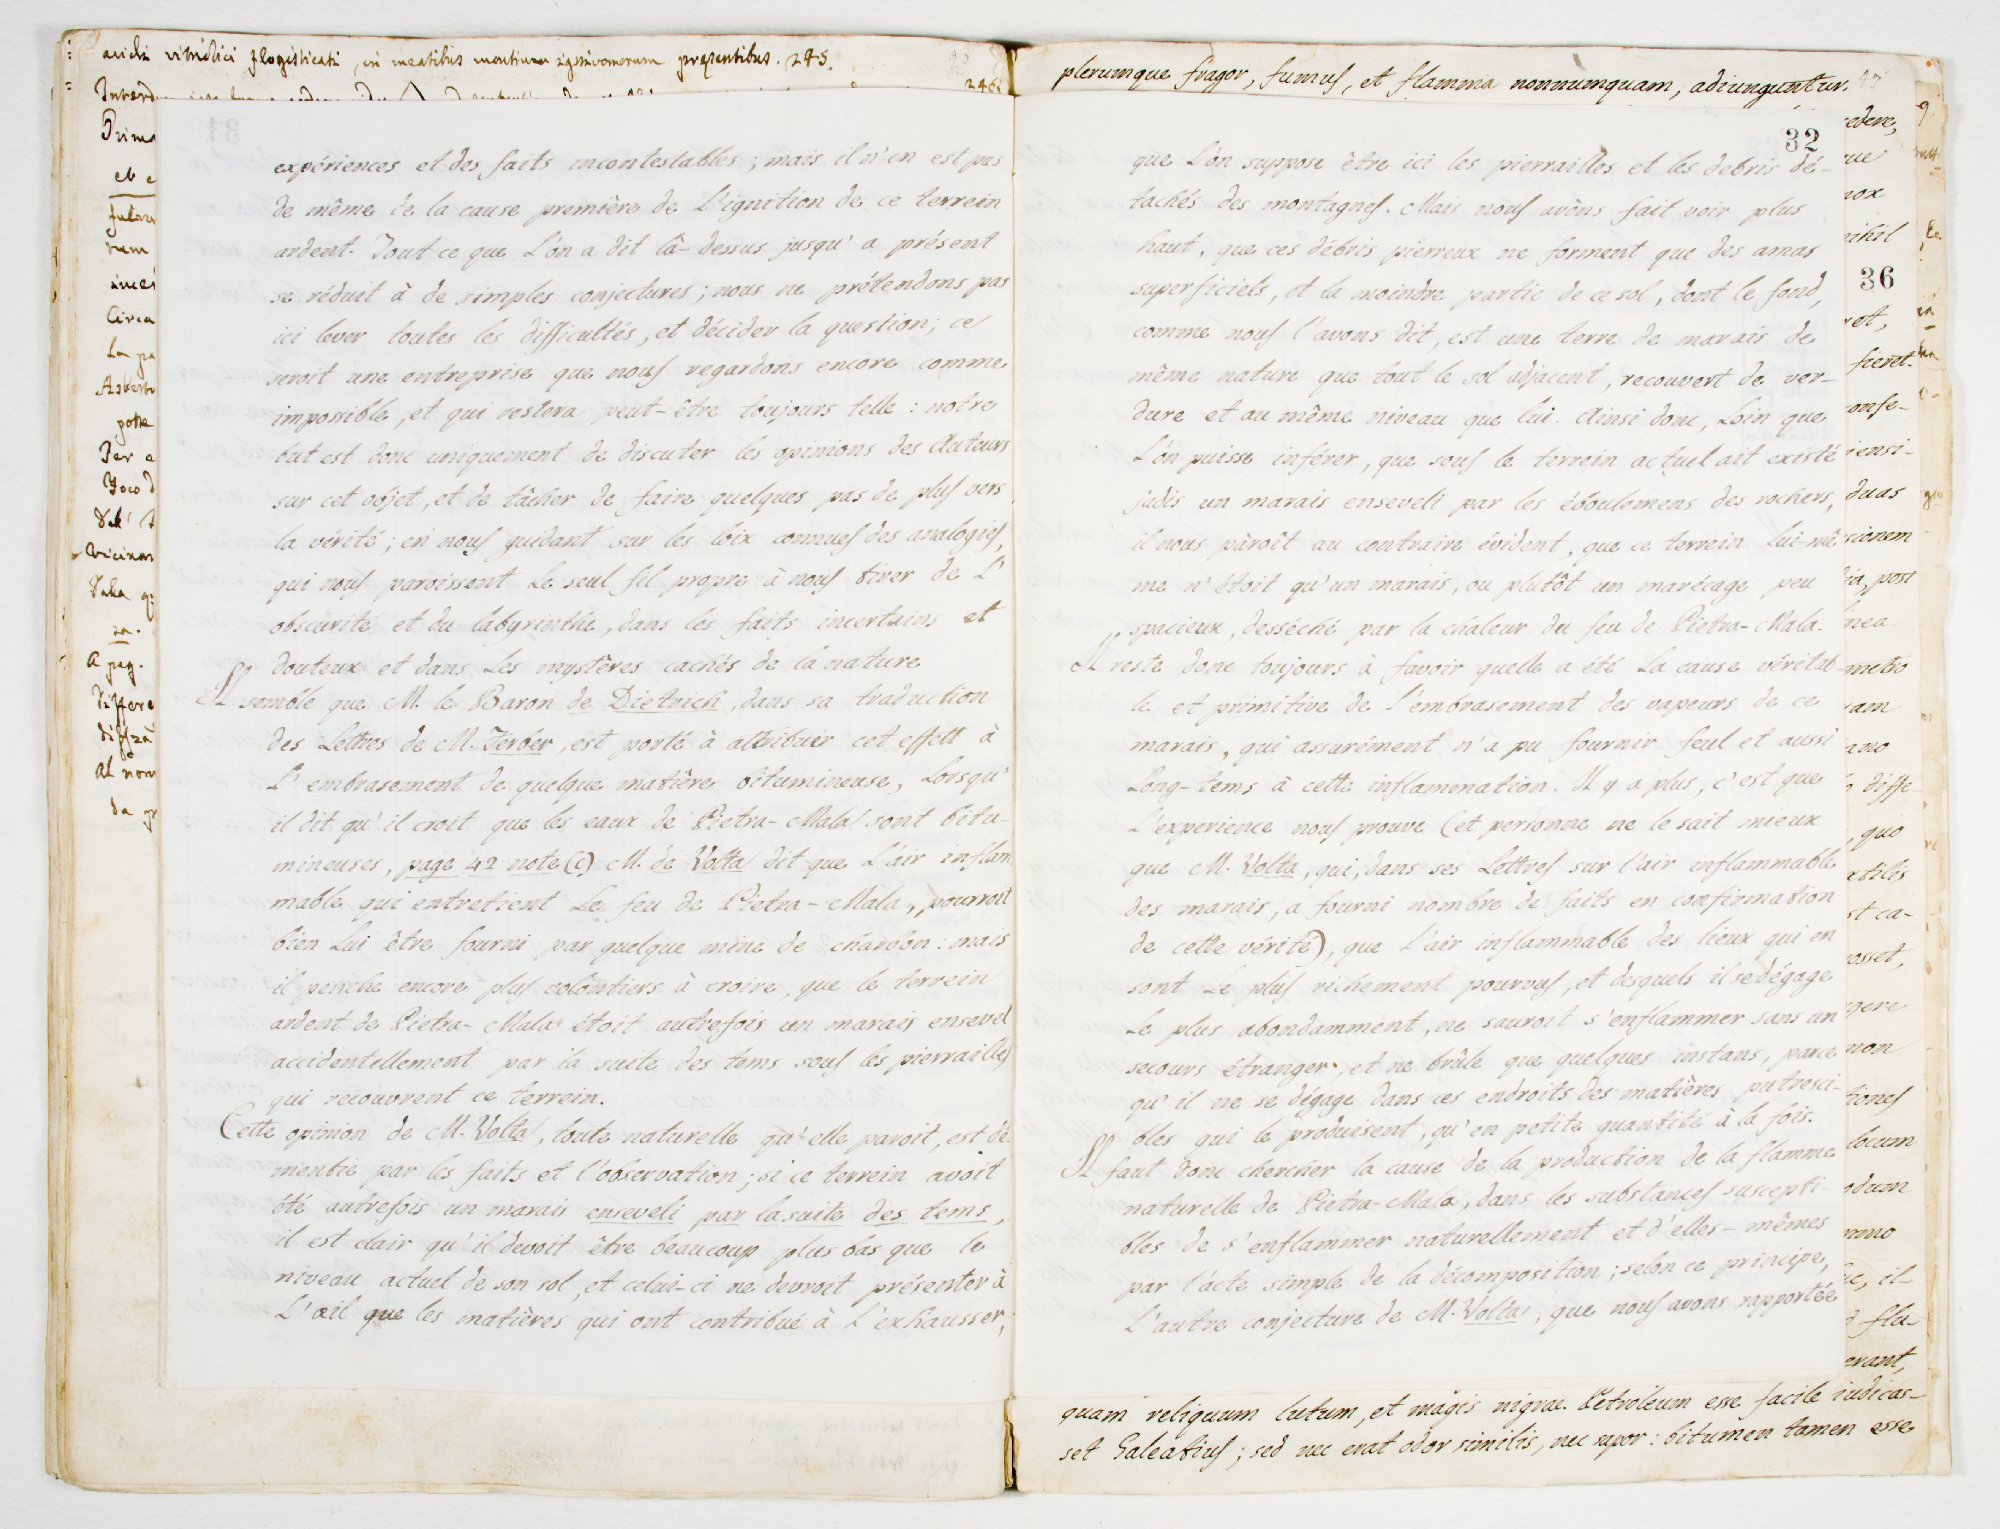 acidi vitriolici flogisticati, in meatibus montium ignivomorum pręsentibus. 245.
246
et
rum
Circa
La
Per
za.
A pag.
differe
Al non
da
expériences et des faits incontestables ; mais il n'en est pas
de même de la cause première de L'ignition de ce terrein
ardent. Tout ce que L'on a dit là-dessus jusqu'a présent
se réduit à de simples conjectures ; nous ne prétendons pas
ici lever toutes les difficultés, et décider la question; ce
seroit une entreprise que nous regardons encore comme
impossible, et qui restera peut-être toujours telle : notre
but est donc uniquement de discuter les opinions des Auteurs
sur cet objet, et de tâcher de faire quelques pas de plus vers
la vérité ; en nous guidant sur les loix connues des analogies,
qui nous paroissent Le seul fil propre à nous tirer de L'
obscurité et du labyrinthe, dans les faits incertains et
douteux et dans Les mystères cachés de la nature
Il semble que M. le Baron de Dietrich, dans sa traduction
des Lettres de M. Ferber, est porté à attribuer cet effett à
L'embrasement de quelque matière bitumineuse, Lorsqu'
il dit qu'il croit que les eaux de Pietra-Mala sont bitu-
mineuses, page 42 note (c) M. de Volta dit que L'air inflam
mable qui entretient Le feu de Pietra-Mala, pourroit
bien Lui être fourni par quelque mine de charbon : mais
il penche encore plus volontiers à croire, que le terrein
ardent de Pietra-Mala étoit autrefois un marais ensevel
accidentellement par la suite des tems sous les pierrailles
qui recouvrent ce terrein.
Cette opinion de M. Volta, toute naturelle qu'elle paroit, est dé
mentie par les faits et l'observation ; si ce terrein avoit
été autrefois un marais enseveli par la suite des tems,
il est clair qu'il devoit être beaucoup plus bas que le
niveau actuel de son sol, et celui-ci ne devroit présenter à
L'œil que les matières qui ont contribué à L'exhausser,
plerumque fragor, fumus, et flamma nonnumquam, adiunguntur.
32
que L'on suppose être ici les pierrailles et les debris dé-
tachés des montagnes. Mais nous avons fait voir plus
haut, que ces débris pierreux ne forment que des amas
superficiels, et la moindre partie de ce sol, dont le fond,
comme nous l'avons dit, est une terre de marais de
même nature que tout le sol adjacent, recouvert de ver-
dure et au même niveau que lui. Ainsi donc, Loin que
L'on puisse inférer, que sous le terrein actuel ait existé
jadis un marais enseveli par les éboulemens des rochers,
il nous pàroît au contraire évident, que ce terrein Lui-mê
me n'étoit qu'un marais, ou plutôt un marécage peu
spacieux, desséché par la chaleur du feu de Pietra-Mala.
Il reste donc toujours à savoir quelle a été La cause véritab
le et primitive de l'embrasement des vapeurs de ce
marais, qui assurément n'a pu fournir seul et aussi
Long-tems à cette inflammation. Il y a plus, c'est que
L'experience nous prouve (et personne ne le sait mieux
que M. Volta, qui, dans ses Lettres sur l'air inflammable
des marais, a fourni nombre de faits en confirmation
de cette vérité), que L'air inflammable des lieux qui en
sont Le plus richement pourvus, et desquels il se dégage
Le plus abondamment, ne sauroit s'enflammer sans un
secours étranger, et ne brûle que quelques instans, parce
qu'il ne se dégage dans ces endroits des matières putresci-
bles qui le produisent, qu'en petite quantité à la fois.
Il faut donc chercher la cause de la production de la flamme
naturelle de Pietra-Mala, dans les substances suscepti-
bles de s'enflammer naturellement et d'elles-mêmes
par l'acte simple de la décomposition ; selon ce principe,
L'autre conjecture de M. Volta, que nous avons rapportée
36
fieret.
duas
post
metro
quo
non
locum
quam reliquum lutum, et magis nigrae. Petroleum esse facile iudicas-
set Galeatius ; sed nec erat odor similis, nec sapor : bitumen tamen esse